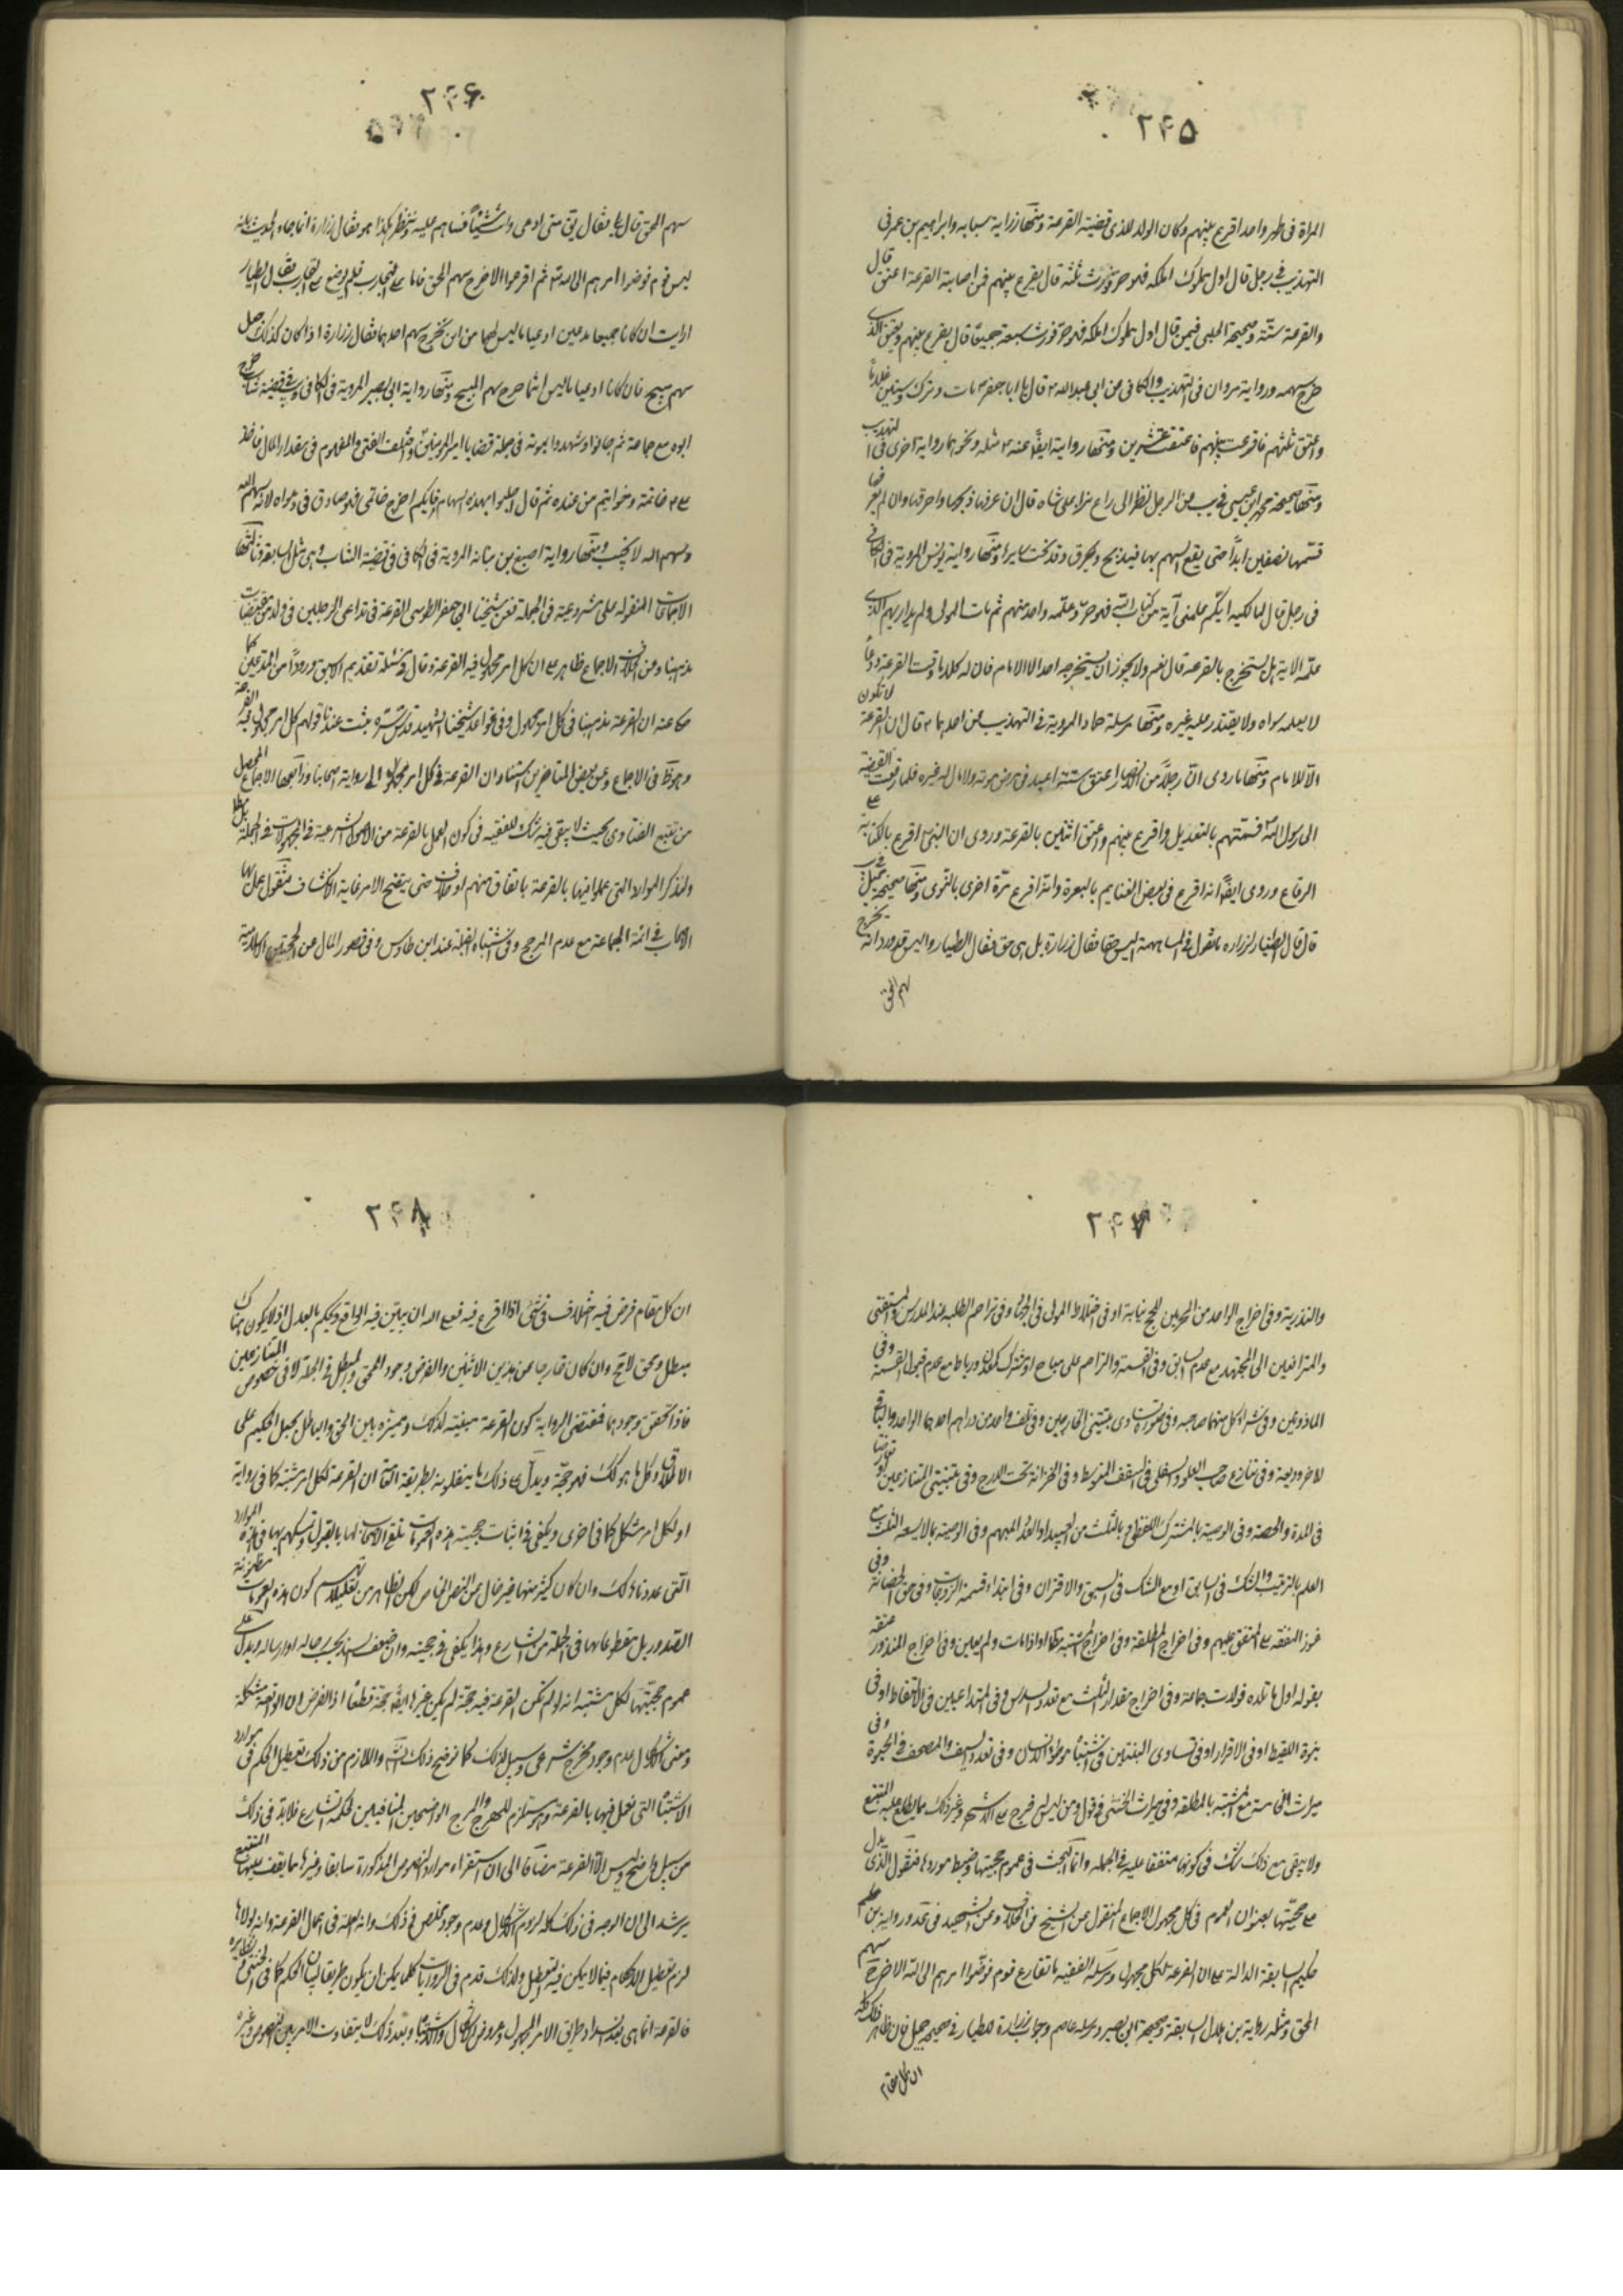 ۲۴۵
المراة فى طهر واحد اقرع بينهم وكان الولد للذى قضيته القرعة ومنها رواية سيابه وابراهيم بن عمر فى
التهذيب فى رجل قال اول مملوك املكه فهو حر فورث ثلثة قال يقرع بينهم فمن اصابته القرعة اعتق قال
والقرعة سنّة وصحيحة الحلبى فيمن قال اول مملوك املكه فهو حرّ فورث سبعة جميعًا قال يقرع بينهم ويعتق الذى
خرج سهمه ورواية مروان فى التهذيب والكافى عن ابى عبد الله ع قال انّ ابا جعفر ع مات وترك ستين غلاماً
واعتق ثلثهم فاقرعت بينهم فاعتقت عشرين ومنها رواية ايضًا عنه ع مثله ونحوهما رواية اخرى فى التهذيب
ومنها صحيحة محمد بن عيسى فى عن الرجل نظر الى راع نزا على شاه قال ان عرفها ذبحها واحرقها وان لم يعرفها
قسّمها نصفين ابداً حتى يقع السهم بها فيذبح ويحرق وقد نجت سايرها ومنها رواية يونس المروية فى الكافى
فى رجل قال لمماليكه ايّكم علمنى آية من كتاب الله فهو حرّ وعلّمه واحد منهم ثم مات المولى ولم يدر ايهم الذى
علّمه الاية هل يستخرج بالقرعة قال نعم ولا يجوز ان يستخرجه احد الا الامام فان له كلاما وقت القرعة ودعاً
لا يعلمه سواه ولا يقتدر عليه غيره ومنها مرسلة حماد المروية فى التهذيب عن احدهما ع قال ان القرعة لا تكون
الّا للامام ومنها ما روى انّ رجلاً من الانصار اعتق ستة اعبد فى مرض موته ولا مال له غيره فلما رفعت القضية
الى رسول الله ص قسّمتهم بالتعديل واقرع بينهم واعتق اثنين بالقرعة وروى ان النبى ص اقرع بالكتابة على
الرقاع وروى ايضًا انه اقرع فى بعض الغنايم بالبعرة وانّه اقرع مرّة اخرى بالنوى ومنها صحيحة جميل
قال قال الطيار لزراره ما تقول فى المساهمة اليس حقا فقال زرارة بل هى حق فقال الطيار واليس قد ورد انه يخرج
سهم الحق
۲۴۶
سهم المحق قال بلى فقال تعال حتى ادعى وانت شيئًا ثم نساهم عليه وننظر هكذا هو فقال زرارة انما جاء الحديث بانه
ليس قوم فوضوا امرهم الى الله ثم اقترعوا الا خرج سهم المحق فاما على التجارب فلم يوضع على التجارب فقال الطيار
ارايت ان كانا جميعا مدعيين ادعيا ما ليس لهما من اين يخرج سهم احدهما فقال زرارة اذا كان كذلك جعل
سهم مبيح فان كانا ادعيا ما ليس لهما خرج سهم المبيح ومنها رواية ابى بصير المروية فى الكافى فى قضية شاب خرج
ابوه مع جماعة ثم جاؤا وشهدوا بموته فى جملة قضايا امير المؤمنين واختلف الفتى والقوم فى مقدار المال فاخذ
على ع خاتمه وخواتيم من عنده ثم قال اجيلوا بهذه السهام فايكم اخرج خاتمى فهو صادق فى دعواه لانه سهم الله
وسهم الله لا يخيب ومنها رواية اصبغ بن نباته المروية فى الكافى فى قضية الشاب وهى مثل السابقة وثالثها
الاجماعات المنقوله على مشروعيته فى الجملة فعن شيخنا ابى جعفر الطوسى القرعة فى تداعى الرجلين فى ولد من مختصات
مذهبنا وعن الخلاف الاجماع ظاهر على ان كل امر مجهول فيه القرعة وقال فى مسئلة تقديم الاسبق ورودًا من المدعيين كما
حكاه عنه ان القرعة مذهبنا فى كل امر مجهول وفى قواعد شيخنا الشهيد قدس سره ثبت عندنا قولهم كل امر مجهول فيه القرعة
وهو ظ فى الاجماع وعن بعض المتاخرين استناد ان القرعة فى كل امر مجهول الى رواية اصحابنا ورابعها الاجماع المحصل
من تتبع الفتاوى بحيث لا يبقى فيه شك للفقيه فى كون العمل بالقرعة من الامور الشرعية فى المجهولات فى الجملة بل
ولنذكر الموارد التى عملوا فيها بالقرعة باتفاق منهم او خلاف حتى يتضح الامر غاية الانكشاف فنقول عمل بها
الاصحاب فى ائمة الجماعة مع عدم المرجح وفى اشتباه القبلة عند ابن طاوس وفى قصور المال عن الحجتين الاسلامية
۲۴۷
والنذرية وفى اخراج الواحد من المحرمين للحج نيابة او فى اختلاط الموتى فى الجهاد وفى تزاحم الطلبه عند المدرس والمستفتى
والمترافعين الى المجتهد مع عدم السابق وفى القسمة والتزاحم على مباح او مشترك كمعدن ورباط مع عدم قبول القسمة وفى
الماذونين وفى شراء كل منهما صاحبه وفى صورة تساوى بيّنتى الخارجين وفى تلف واحد من دراهم احدهما الواحد والباقى
لاخر وديعة وفى تنازع صاحب العلو والسفلى فى السقف المتوسط وفى الخزانة تحت الدرج وفى بيّنتى المتنازعين لو تعارضتا
فى المدة والحصة وفى الوصية بالمشترك اللفظى او بالثلث من العبيد او العدد المبهم وفى الوصية بما لا يسعه الثلث مع
العلم بالترتيب والشك فى السابق او مع الشك فى السبق والاقتران وفى ابتداء قسمة الزوجات وفى حق الحضانة وفى
عوز النفقه على المنفق عليهم وفى اخراج المطلقة وفى اخراج المشتبه بما اواذا مات ولم يعين وفى اخراج المنذور عتقه
بقوله اول ما تلده فولدت جماعة وفى اخراج مقدار الثلث مع تعدد السدس وفى المتداعيين فى الالتقاط او فى
بنوة اللقيط او فى الاقرار او فى تساوى البينتين فى اشتباه موطوءة الانسان وفى تعدد السيف والمصحف فى الحبوة وفى
ميراث الخامسة مع المشتبه بالمطلقه وفى ميراث الخنثى فى قول ومن ليس له فرج على الاشهر وغير ذلك مما يطلع عليه المتتبع
ولا يبقى مع ذلك شك فى كونها متفقا عليه فى الجمله وانّما البحث فى عموم حجيتها وضبط موردها فنقول الّذى يدل
على حجيّتها بعنوان العموم فى كل مجهول الاجماع المنقول عن الشيخ فى الخلاف وعن الشهيد فى قواعده ورواية بن حكيم
حكيم السابقة الدالة على ان القرعة لكل مجهول ومرسلة الفقيه ما تقارع قوم فوضوا امرهم الى الله الا خرج سهم
المحق ومثله رواية بن هلال السابقة وصحيحة ابى بصير ومرسله عاصم وجواب زرارة للطيار فى صحيحة جميل فان ظاهر ذلك كله
ان كل مقام
۲۴۸
ان كل مقام فرض فيه اختلاف فى شئ اذا اقرع فيه فعلى الله ان يبيّن فيه الواقع ويحكم بالعدل اذ لا يكون هناك
مبطل ومحق لاتح وان كان خارجا عن هذين الاثنين والفرض وجود المحق والمبطل فى الجملة لا فى خصوص المتنازعين
فاذا تحقق وجودهما فمقتضى الرواية كون القرعة مبيّنه لذلك ومميزه بين الحق والباطل بجعل الحكيم على
الاطلاق وكل ما هو كك فهو حجّة ويدلّ على ذلك ما ينقلونه بطريقة العامة ان القرعة لكل امر مشتبه كما فى رواية
او لكل امر مشكل كما فى اخرى ويكفى فى اثبات حجية هذه العمومات تلقى الاصحاب لها بالقبول وتمسكهم بها فى هذه الموارد
الّتى عددناها لك وان كان كثير منها غير خال عن النص الخاص لكن الظاهر من تعليلاتهم كون هذه العمومات مظنونة
الصدور بل مقطوعا بها فى الجملة من الشارع وهذا يكفى فى حجيته وان ضعف السند بحسب رجاله او ارساله ويدل على
عموم حجيّتها لكل مشتبه انه لو لم تكن القرعة فيه حجّة لم يكن غيرها ايضًا حجّة قطعاً اذ الفرض ان الواقعة مشكلة
ومعنى الاشكال عدم وجود مخرج شرعى وسبيل لذلك كما نوضح ذلك انشاء الله واللازم من ذلك تعطيل الحكم فى موارد
الاشتباه التى نعمل فيها بالقرعة وهو مستلزم للهرج والمرج الواضحين المنافيين لحكمة الشارع فلابدّ فى ذلك
من سبيل واضح وليس الّا القرعة مضافا الى ان استقراء موارد النصوص المذكورة سابقا وغيرها مما يقف عليها المتتبع
يرشد الى ان الوجه فى ذلك كله لزوم الاشكال وعدم وجود مخلص فى ذلك وانه العلة فى اعمال القرعة وانه لولاها
لزم تعطيل الاحكام فيما لا يمكن فيه التعطيل ولذلك قدم فى الروايات كلما يمكن ان يكون طريقا لبيان الحكم كما فى الخنثى ونظايره
فالقرعة انما هى بعد انسداد طريق الامر المجهول وعروض الاشكال والاشتباه وبعد ذلك لا يتفاوت الامر بين المنصوص وغيره